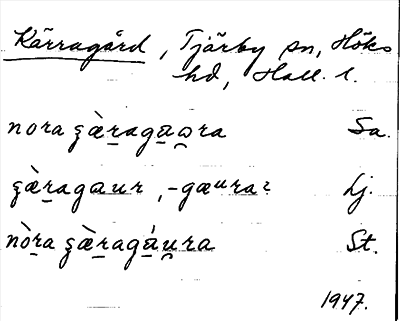 Kärragård, Tjärby sn, Höks
hd, Hall. l.
nora ʂæ̀ra̱gа̱o̯ra Sa.
ʂæ̀ṟagaur, -gæuraɿ Lj.
nò̱ra ʂæ̀ṟagá̱u̯ra St.
1947.